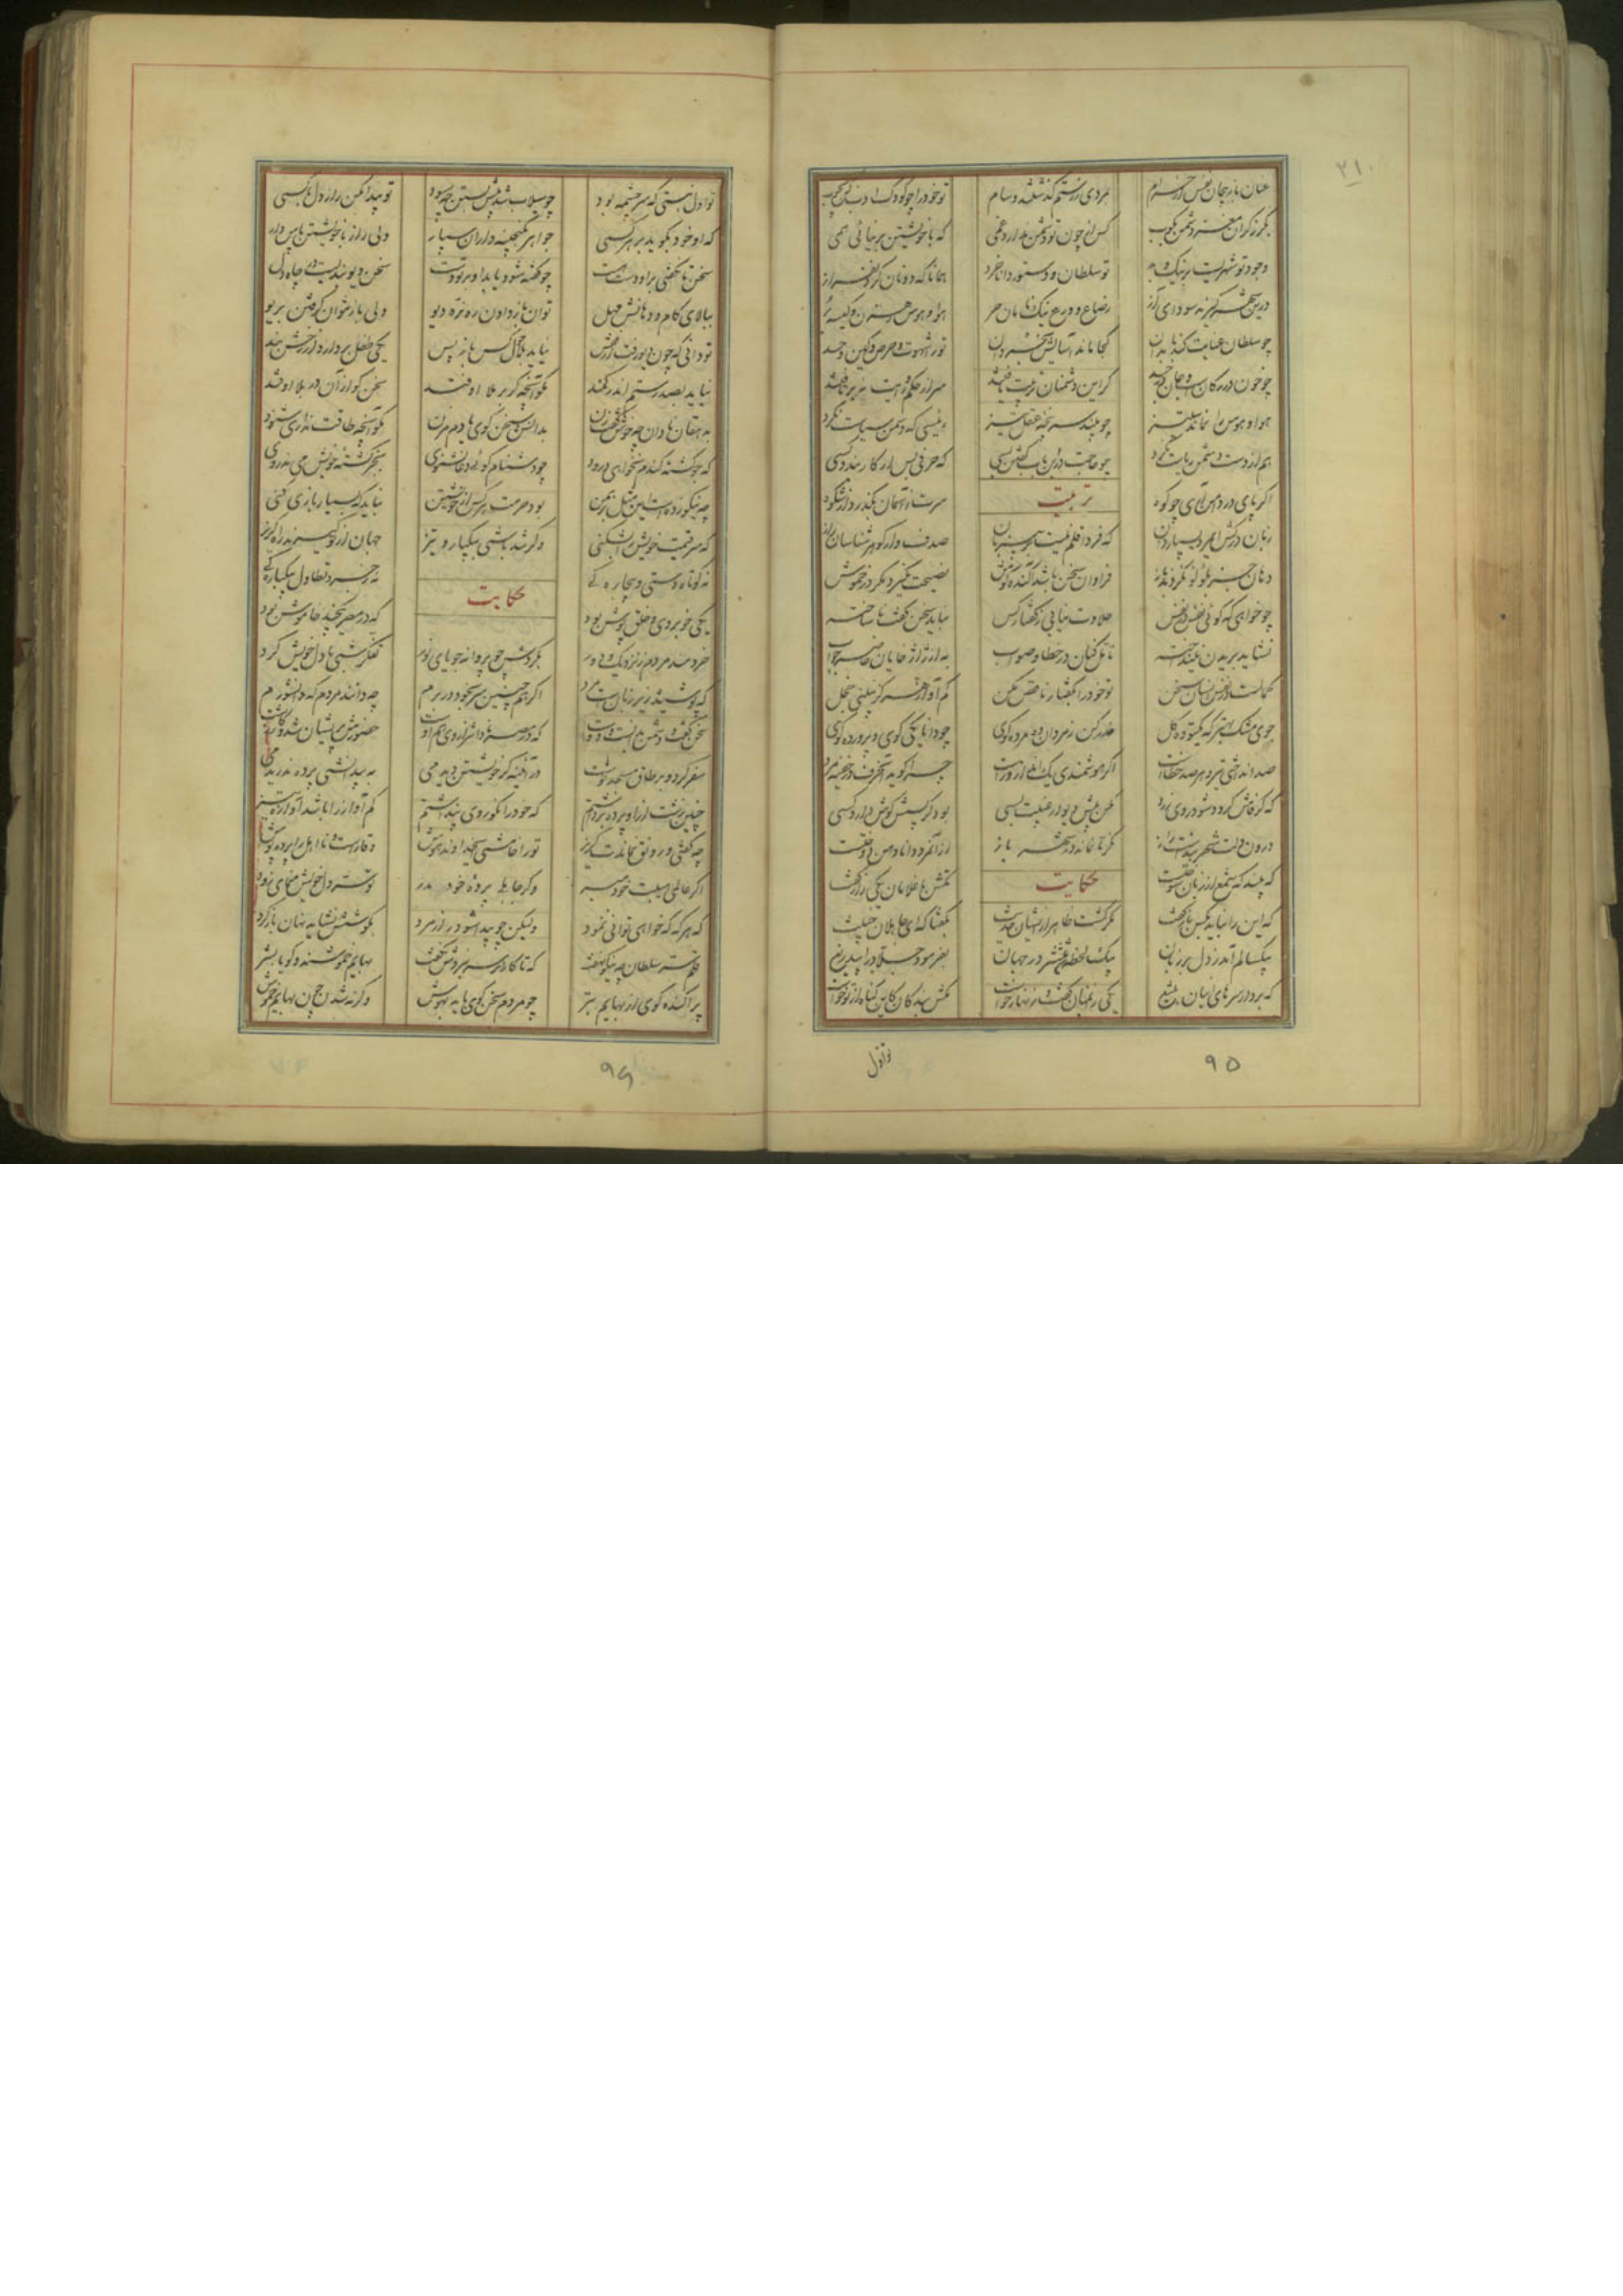 ۲۱۰
عنان بازپیچان نفس از حرام بمردی ز رستم گذشتند و سام تو خود را چو کودک ادب کن بچوب
بگرز گران مغز دشمن مکوب کس از چون تو دشمن ندارد غمی که با خویشتن بر نیائی همی
وجود تو شهریست پر نیک و بد تو سلطان و دستور دانا خرد همانا که دونان گردن فراز
درین شهر کبرند و سودای آز رضا و ورع نیک نامان حر هوا و هوس رهزن و کیسه بر
چو سلطان عنایت کند با بدان کجا ماند آسایش بخردان ترا شهوت و حرص و کین و حسد
چو خون در رگان است و جان در جسد گر این دشمنان تربیت یافتند سر از حکم و رایت بر تافتند
هوا و هوس را نماند ستیز چو بینند سر پنجه عقل تیز رئیسی که دشمن سیاست نکرد
هم از دست دشمن ریاست نکرد چو حاجت درین باب گفتن بسی که حرفی بس ار کار بندد کسی
اگر پای در دامن آری چو کوه تربیت سرت ز آسمان بگذرد در شکوه
زبان درکش ای مرد بسیار دان که فردا قلم نیست بر بی زبان صدف وار گوهر شناسان راز
دهان جز بلولو نکردند باز فراوان سخن باشد آکنده گوش نصیحت نگیرد مگر در خموش
چو خواهی که گوئی نفس در نفس حلاوت نیابی ز گفتار کس نباید سخن گفت ناساخته
نشاید بریدن نینداخته تامل کنان در خطا و صواب به از ژاژ خایان حاضر جواب
کمالست در نفس انسان سخن تو خود را بگفتار ناقص مکن کم آواز هرگز نبینی خجل
جوی مشک بهتر که یکتوده گل حذر کن ز نادان ده مرده گوی چو دانا یکی گوی و پرورده گوی
صد انداختی تیر و هر صد خطاست اگر هوشمندی یک انداز و راست چرا گوید آن حرف در خفیه مرد
که گر فاش گردد شود روی زرد مکن پیش دیوار غیبت بسی بود کز پسش گوش دارد کسی
درون دلت شهر بندست راز نگر تا نماند در شهر باز از آن مرد دانا دهن دوختست
که بیند که شمع از زبان سوختست حکایت تکش با غلامان یکی راز گفت
که این را نباید بکس باز گفت مگر گشت ظاهر از ایشان حدیث بگفتا که ای جاهلان خبیث
بیکسالم آمد ز دل بر زبان بیک لحظه شد منتشر در جهان بفرمود جلاد را بیدریغ
که بردار سرهای اینان بتیغ یکی زانمیان گفت و زنهار خواست مکش بندگان کاین گناه از تو خاست
۹۵
تو اول
تو اول نبستی که سرچشمه بود چو سیلاب شد پیش بستن چه سود تو پیدا مکن راز دل با کسی
که او خود بگوید بر هر کسی جواهر بگنجینه داران سپار ولی راز با خویشتن پاس دار
سخن تا نگفتی برو دست هست چو گفته شود یابد او بر تو دست سخن دیو بندیست در چاه دل
ببالای کام و دهانش مهل توان باز دادن ره نره دیو ولی باز نتوان گرفتن بریو
تو دانی که چون دیو رفت از قفس نیاید بلاحول کس باز پس یکی طفل بردارد از رخش بند
نیاید بصد رستم اندر کمند مگو آنچه گر بر ملا اوفتد سخن گو از آن در بلا اوفتد
به دهقان نادان چه خوش گفت زن بدانش سخن گوی یا دم مزن مگو آنچه طاقت نداری شنود
که جو کشته گندم نخواهی درود چو دشنام گوئی دعا نشنوی بجز کشته خویش می ندروی
چه نیکو زده است این مثل برهمن بود حرمت هر کس از خویشتن نباید که بسیار بازی کنی
که مر قیمت خویش را بشکنی وگر تند باشی بیکبار و تیز جهان از تو گیرند راه گریز
نه کوتاه دستی و بیچاره گی حکایت نه زجر و تطاول بیکبارگی
یکی خوبروی و خلق پوش بود که در مصر یکچند خاموش بود
خردمند مردم ز نزدیک و دور بگردش چو پروانه جویای نور تفکر شبی با دل خویش کرد
که پوشیده زیر زبان است مرد اگر همچنین سر بخود در برم چه دانند مردم که دانشورم
سخن گفت و دشمن بدانست و دوست که در مصر نادانتر از وی هم اوست حضورش پریشان شد و کار زشت
سفر کرد و بر طاق مسجد نوشت در آئینه گر خویشتن دیدمی به بیدانشی پرده ندریدمی
چنین زشت از آن پرده برداشتم که خود را نکو روی پنداشتم کم آواز را باشد آوازه تیز
چو گفتی و رونق نماندت گریز تو را خامشی ای خداوند هوش وقارست و نا اهل را پرده پوش
اگر عالمی هیبت خود مبر وگر جاهلی پرده خود مدر ضمیر دل خویش منمای زود
که هر گه که خواهی توانی نمود ولیکن چو پیدا شود راز مرد بکوشش نشاید نهان باز کرد
قلم سر سلطان چه نیکو نهفت که تا کارد بر سر نبودش نگفت بهایم خموشند و گویا بشر
پراکنده گوی از بهایم بتر چو مردم سخن گوی باید بهوش وگرنه شدن چون بهایم خموش
۹۶